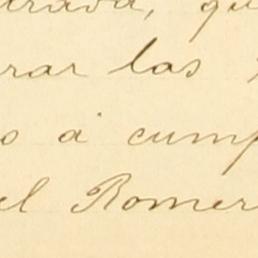 trada, qu
rar las
o á cump
el Romer